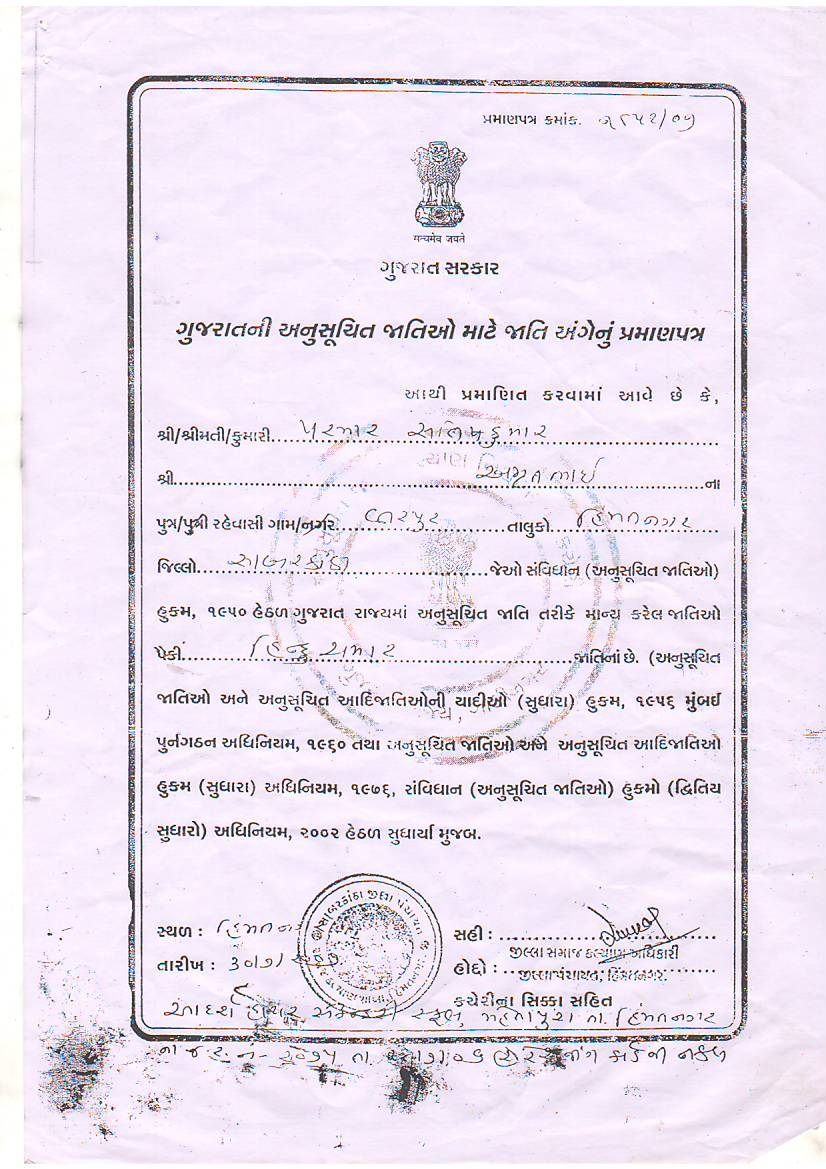 પ્રમાણપત્ર ક્રમાંક.
सत्यमेव जयते
ગુજરાત સરકાર
ગુજરાતની અનુસૂચિત જાતિઓ માટે જાતિ અંગેનું પ્રમાણપત્ર
આથી પ્રમાણિત કરવામાં આવે છે કે,
શ્રી/શ્રીમતી/કુમારી. પરમાર
શ્રી. અમૃતભાઈ ના
પુત્ર/પુત્રી રહેવાસી ગામ/નગર. તાલુકો. હિંમતનગર
જિલ્લો. સાબરકાંઠા જેઓ સંવિધાન (અનુસૂચિત જાતિઓ)
હુકમ, ૧૯૫૦ હેઠળ ગુજરાત રાજ્યમાં અનુસૂચિત જાતિ તરીકે માન્ય કરેલ જાતિઓ
પૈકી. હિન્દુ ચમાર જાતિનાં છે. (અનુસૂચિત
જાતિઓ અને અનુસૂચિત આદિજાતિઓની યાદીઓ (સુધારા) હુકમ, ૧૯૫૬ મુંબઈ
પુર્નગઠન અધિનિયમ, ૧૯૬૦ તથા અનુસૂચિત જાતિઓ અને અનુસૂચિત આદિજાતિઓ
હુકમ (સુધારા) અધિનિયમ, ૧૯૭૬, સંવિધાન (અનુસૂચિત જાતિઓ) હુકમો (દ્વિતિય
સુધારો) અધિનિયમ, ૨૦૦૨ હેઠળ સુધાર્યા મુજબ.
સ્થળ :
સહી :
જીલ્લા સમાજ કલ્યાણ અધિકારી
તારીખ :
હોદ્દો : જીલ્લા પંચાયત, હિંમતનગર.
કચેરીના સિક્કા સહિત
આદર્શ હાયર સેકન્ડરી સ્કુલ મહેતાપુરા તા. હિંમતનગર